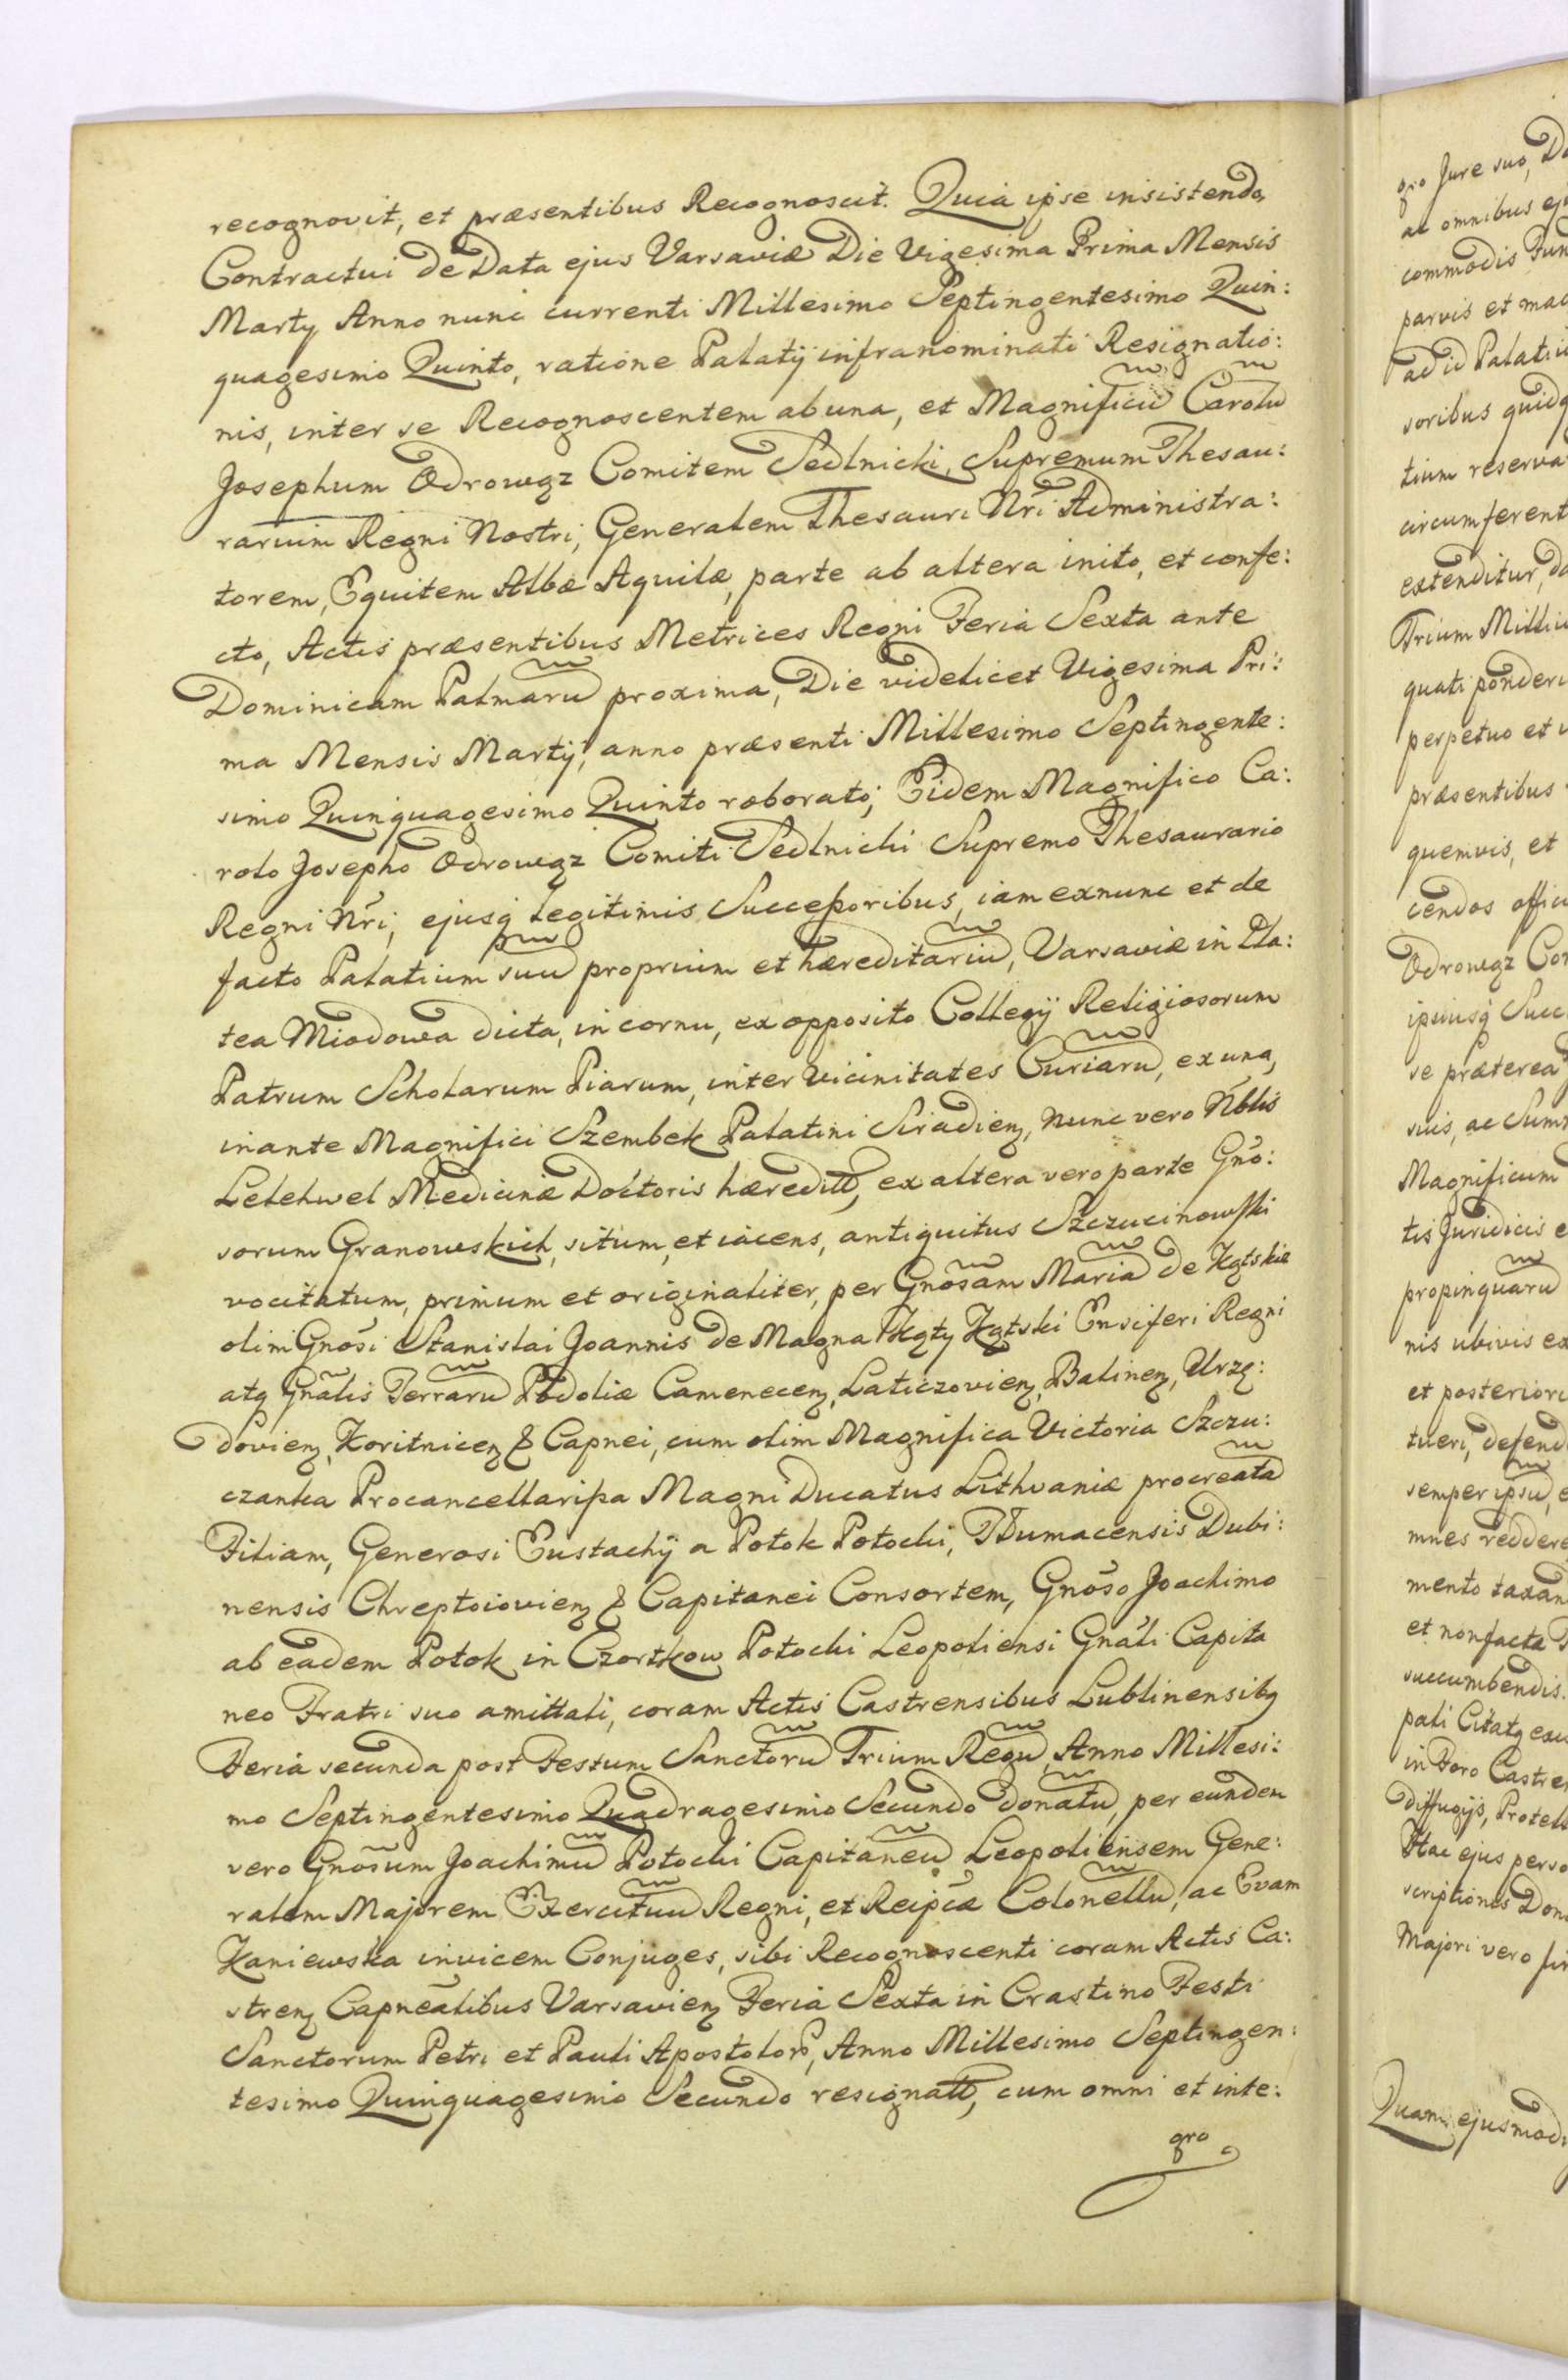 recognovit, et præsentibus Recognoscit. Quia ipse insistendo
Contractui de Data ejus Varsaviæ Die Vigesima Prima Mensis
Martÿ Anno nunc currenti Millesimo Septingentesimo Quin:
quagesimo Quinto, ratione Palatÿ infranominati Resignatio:
nis, inter se Recognoscentem ab una, et Magnificū Carolū
Josephum Odrowąz Comitem Sedlnicki, Supremum Thesau:
rarium Regni Nostri, Generalem Thesauri Nri Administra:
torem, Equitem Albæ Aquilæ, parte ab altera inito, et confe:
cto, Actis præsentibus Metrices Regni Feria Sexta ante
Dominicam Palmarū proxima, Die videlicet Vigesima Pri:
ma Mensis Martÿ, anno præsenti Millesimo Septingente:
simo Quinquagesimo Quinto roborato; Eidem Magnifico Ca:
rolo Josepho Odrowąz Comiti Sedlnicki Supremo Thesaurario
Regni Nri, ejusq legitimis Succeßoribus, iam exnunc et de
facto Palatium suū proprium et hæreditariū, Varsaviæ in Pla:
tea Miodowa dicta, in cornu, ex opposito Collegÿ Religiosorum
Patrum Scholarum Piarum, inter vicinitates Curiarū, ex una,
inante Magnifici Szembek Palatini Siradien, nunc vero Nblis
Lelehwel Medicinæ Doctoris hæredit, ex altera vero parte Gno:
sorum Granowskich, situm, et iacens, antiquitus Szczucinowski
vocitatum, primum et originaliter, per Gnosam Mariā de Kątskie
olim Gnosi Stanislai Joannis de Magna Kąty Kątski Ensiferi Regni
atq Gnalis Terrarū Podoliæ Camenecen, Laticzovien, Balinen, Urzę:
dovien, Koritnicen & Capnei, cum olim Magnifica Victoria Szczu:
czanka Procancellarißa Magni Ducatus Lithvaniæ procreatā
Filiam, Generosi Eustachÿ a Potok Potocki, Tłumacensis Dubi:
nensis Chreptoiovien & Capitanei Consortem, Gnoso Joachimo
ab eadem Potok in Czortkow Potocki Leopoliensi Gnali Capita
neo Fratri suo amittali, coram Actis Castrensibus Lublinensibq
Feria secunda post Festum Sanctorū Trium Regū, Anno Millesi:
mo Septingentesimo Quadragesimo Secundo donatū, per eunden
vero Gnosum Joachimū Potocki Capitaneū Leopoliensem Gene:
ralem Majorem Exercituū Regni, et Reipcæ Colonellū, ac Evam
Kaniewska invicem Conjuges, sibi Recognoscenti coram Actis Ca:
stren Capnealibus Varsavien Feria Sexta in Crastino Festi
Sanctorum Petri et Pauli Apostolor, Anno Millesimo Septingen:
tesimo Quinquagesimo Secundo resignatt, cum omni et inte:
gro
gro Jure suo,
ac omnibus
commodis
parvis et
ad id
soribus
tium
circumferent
extenditur,
Trium
quati
perpetuo et
præsentibus
quemvis, et
cendos
Odrowąz
ipsiusq
se præterea
suis, ac
Magnificum
tis Juridicis
propinquarū
nis ubivis
et
tueri,
semper ipsū,
mnes reddere
mento
et nonfacta
succumbendis.
pati
in Foro
diffugÿs,
Hac ejus
scriptiones
Majori vero
Quam